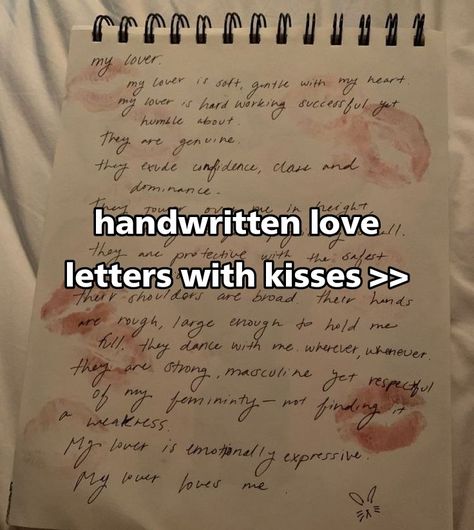 my lover.
my lover is soft, gentle with my heart.
my lover is hard working successful yet
humble about.
they are genuine.
they exude confidence, class and
dominance.
They tower over me in height
handwritten love
all.
they are protective with the safest
letters with kisses >>
their shoulders are broad their hands
are rough, large enough to hold me
full. they dance with me. wherever, whenever.
they are strong, masculine yet respectful
of my femininty — not finding it
a weakness.
My lover is emotionally expressive.
My lover loves me.